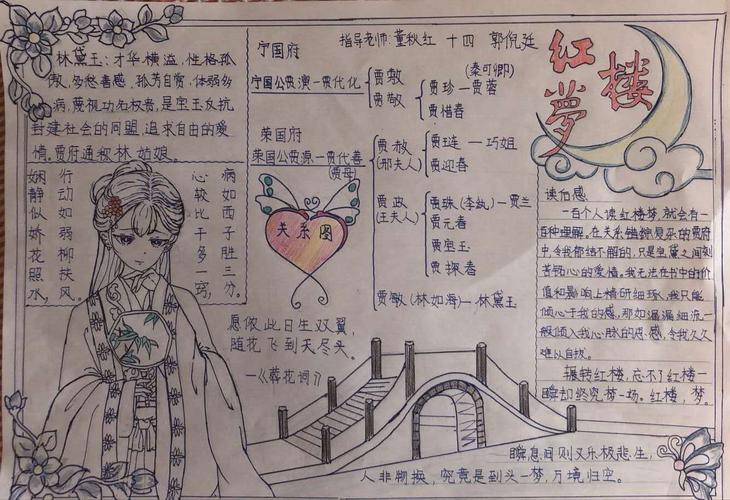 林黛玉：才华横溢，性格孤
傲，多愁善感，孤芳自赏，体弱多
病，蔑视功名权贵，是宝玉反抗
封建社会的同盟，追求自由的爱
情。贾府通称林姑娘。
娴静似娇花照水，
行动如弱柳扶风。
心较比干多一窍，
病如西子胜三分。
宁国府
指导老师：董秋红 十四 郭倪廷
红楼梦
宁国公贾演—贾代化
贾敷
贾敬
(秦可卿)
贾珍—贾蓉
贾惜春
荣国府
荣国公贾源—贾代善
(贾母)
贾赦
(邢夫人)
贾琏—巧姐
贾迎春
贾政
(王夫人)
贾珠(李纨)—贾兰
贾元春
贾宝玉
贾探春
贾敏(林如海)—林黛玉
关系图
愿侬此日生双翼，
随花飞到天尽头。
—《葬花词》
读后感
一百个人读红楼梦，就会有一
百种理解，在关系错综复杂的贾府
中，令我郁结不解的，只是宝黛之间刻
苦铭心的爱情，我无法在书中的价
值和影响上精研细琢，我只能
倾心于我的感，那如潺潺细流一
般倾入我心脉的思感，令我久久
难以自拔。
辗转红楼，忘不了红楼一
瞬却终究梦一场。红楼，梦。
瞬息间则又乐极悲生，
人非物换，究竟是到头一梦，万境归空。